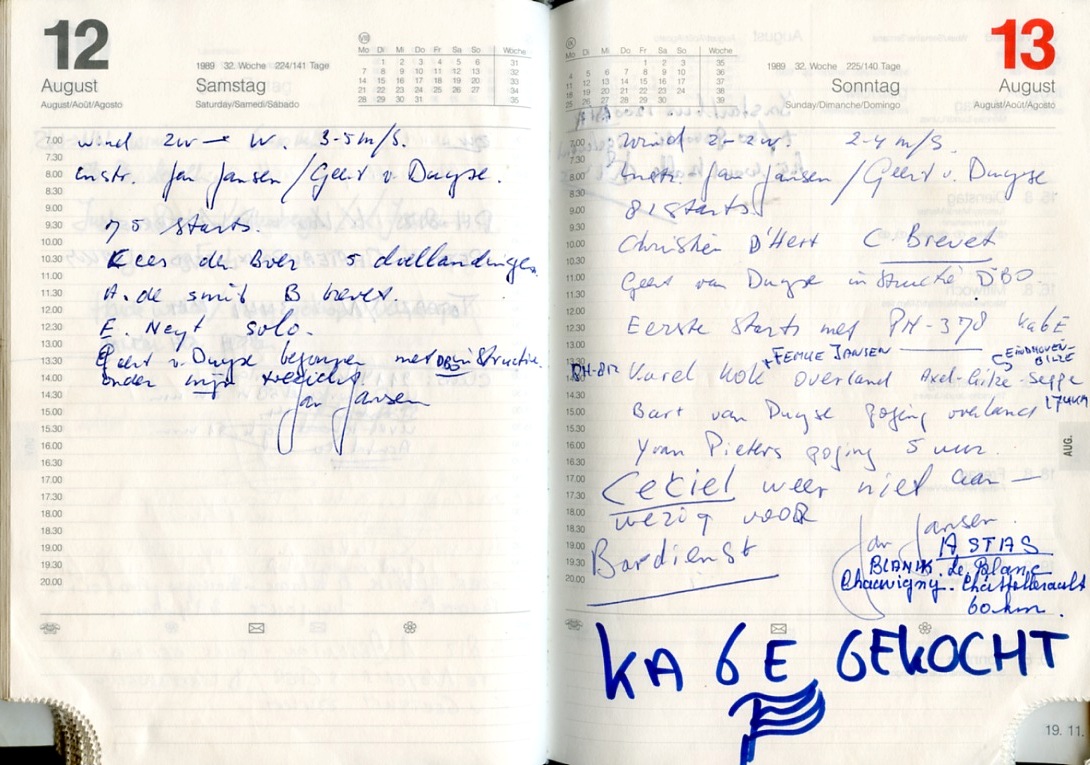 12
August
August/Août/Agosto
1989 32. Woche 224/141 Tage
Samstag
Saturday/Samedi/Sábado
Mo Di Mi Do Fr Sa So Woche
1 2 3 4 5 6 31
7 8 9 10 11 12 13 32
14 15 16 17 18 19 20 33
21 22 23 24 25 26 27 34
28 29 30 31 35
7.00 wind zw → w. 3-5 m/s.
7.30
8.00 instr. Jan Jansen / Geert v. Duyse.
8.30
9.00
9.30 75 starts.
10.00
10.30 Kees den Boer 5 doellandingen
11.00
11.30 A. de smit B brevet.
12.00
12.30 E. Neyt solo.
13.00
13.30 Geert v. Duyse begonnen met DBO instructie
14.00 onder mijn toezicht.
14.30 Jan Jansen
15.00
15.30
16.00
16.30
17.00
17.30
18.00
18.30
19.00
19.30
20.00
13
August
August/Août/Agosto
1989 32. Woche 225/140 Tage
Sonntag
Sunday/Dimanche/Domingo
Mo Di Mi Do Fr Sa So Woche
1 2 3 35
4 5 6 7 8 9 10 36
11 12 13 14 15 16 17 37
18 19 20 21 22 23 24 38
25 26 27 28 29 30 39
7.00 Wind z-zw. 2-4 m/s.
7.30
8.00 Instr. Jan Jansen / Geert v. Duyse
8.30
9.00 81 starts.
9.30
10.00 Christien D'Hert C. Brevet
10.30
11.00 Geert van Duyse instructie DBO
11.30
12.00
12.30 Eerste starts met PH-378 Ka6E
13.00
13.30 + FEMKE JANSEN EINDHOVEN-GILZE
PH-812 Karel Kok overland Axel-Gilze-Seppe
14.30 174KM
15.00 Bart van Duyse poging overland
15.30
16.00 Yvan Pieters poging 5 uur.
16.30
17.00 Ceciel weer niet aan-
17.30
18.00 wezig voor
18.30 Jan Jansen.
19.00 Bardienst
19.30
20.00
ASTIAS
BLANK. Le Blanc
Chauvigny. Chattellerault
60 km.
KA 6 E GEKOCHT
AUG.
19. 11.